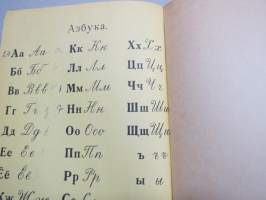 Азбука.
Аа Аа Кк Кк Хх Хх
Бб Бб Лл Лл Цц Цц
Вв Вв Мм Мм Чч Чч
Гг Гг Нн Нн Шш Шш
Дд Дд Оо Оо Щщ Щщ
Ее Ее Пп Пп ъ ъ
Ёё Ёё Рр Рр ы ы
Жж Жж